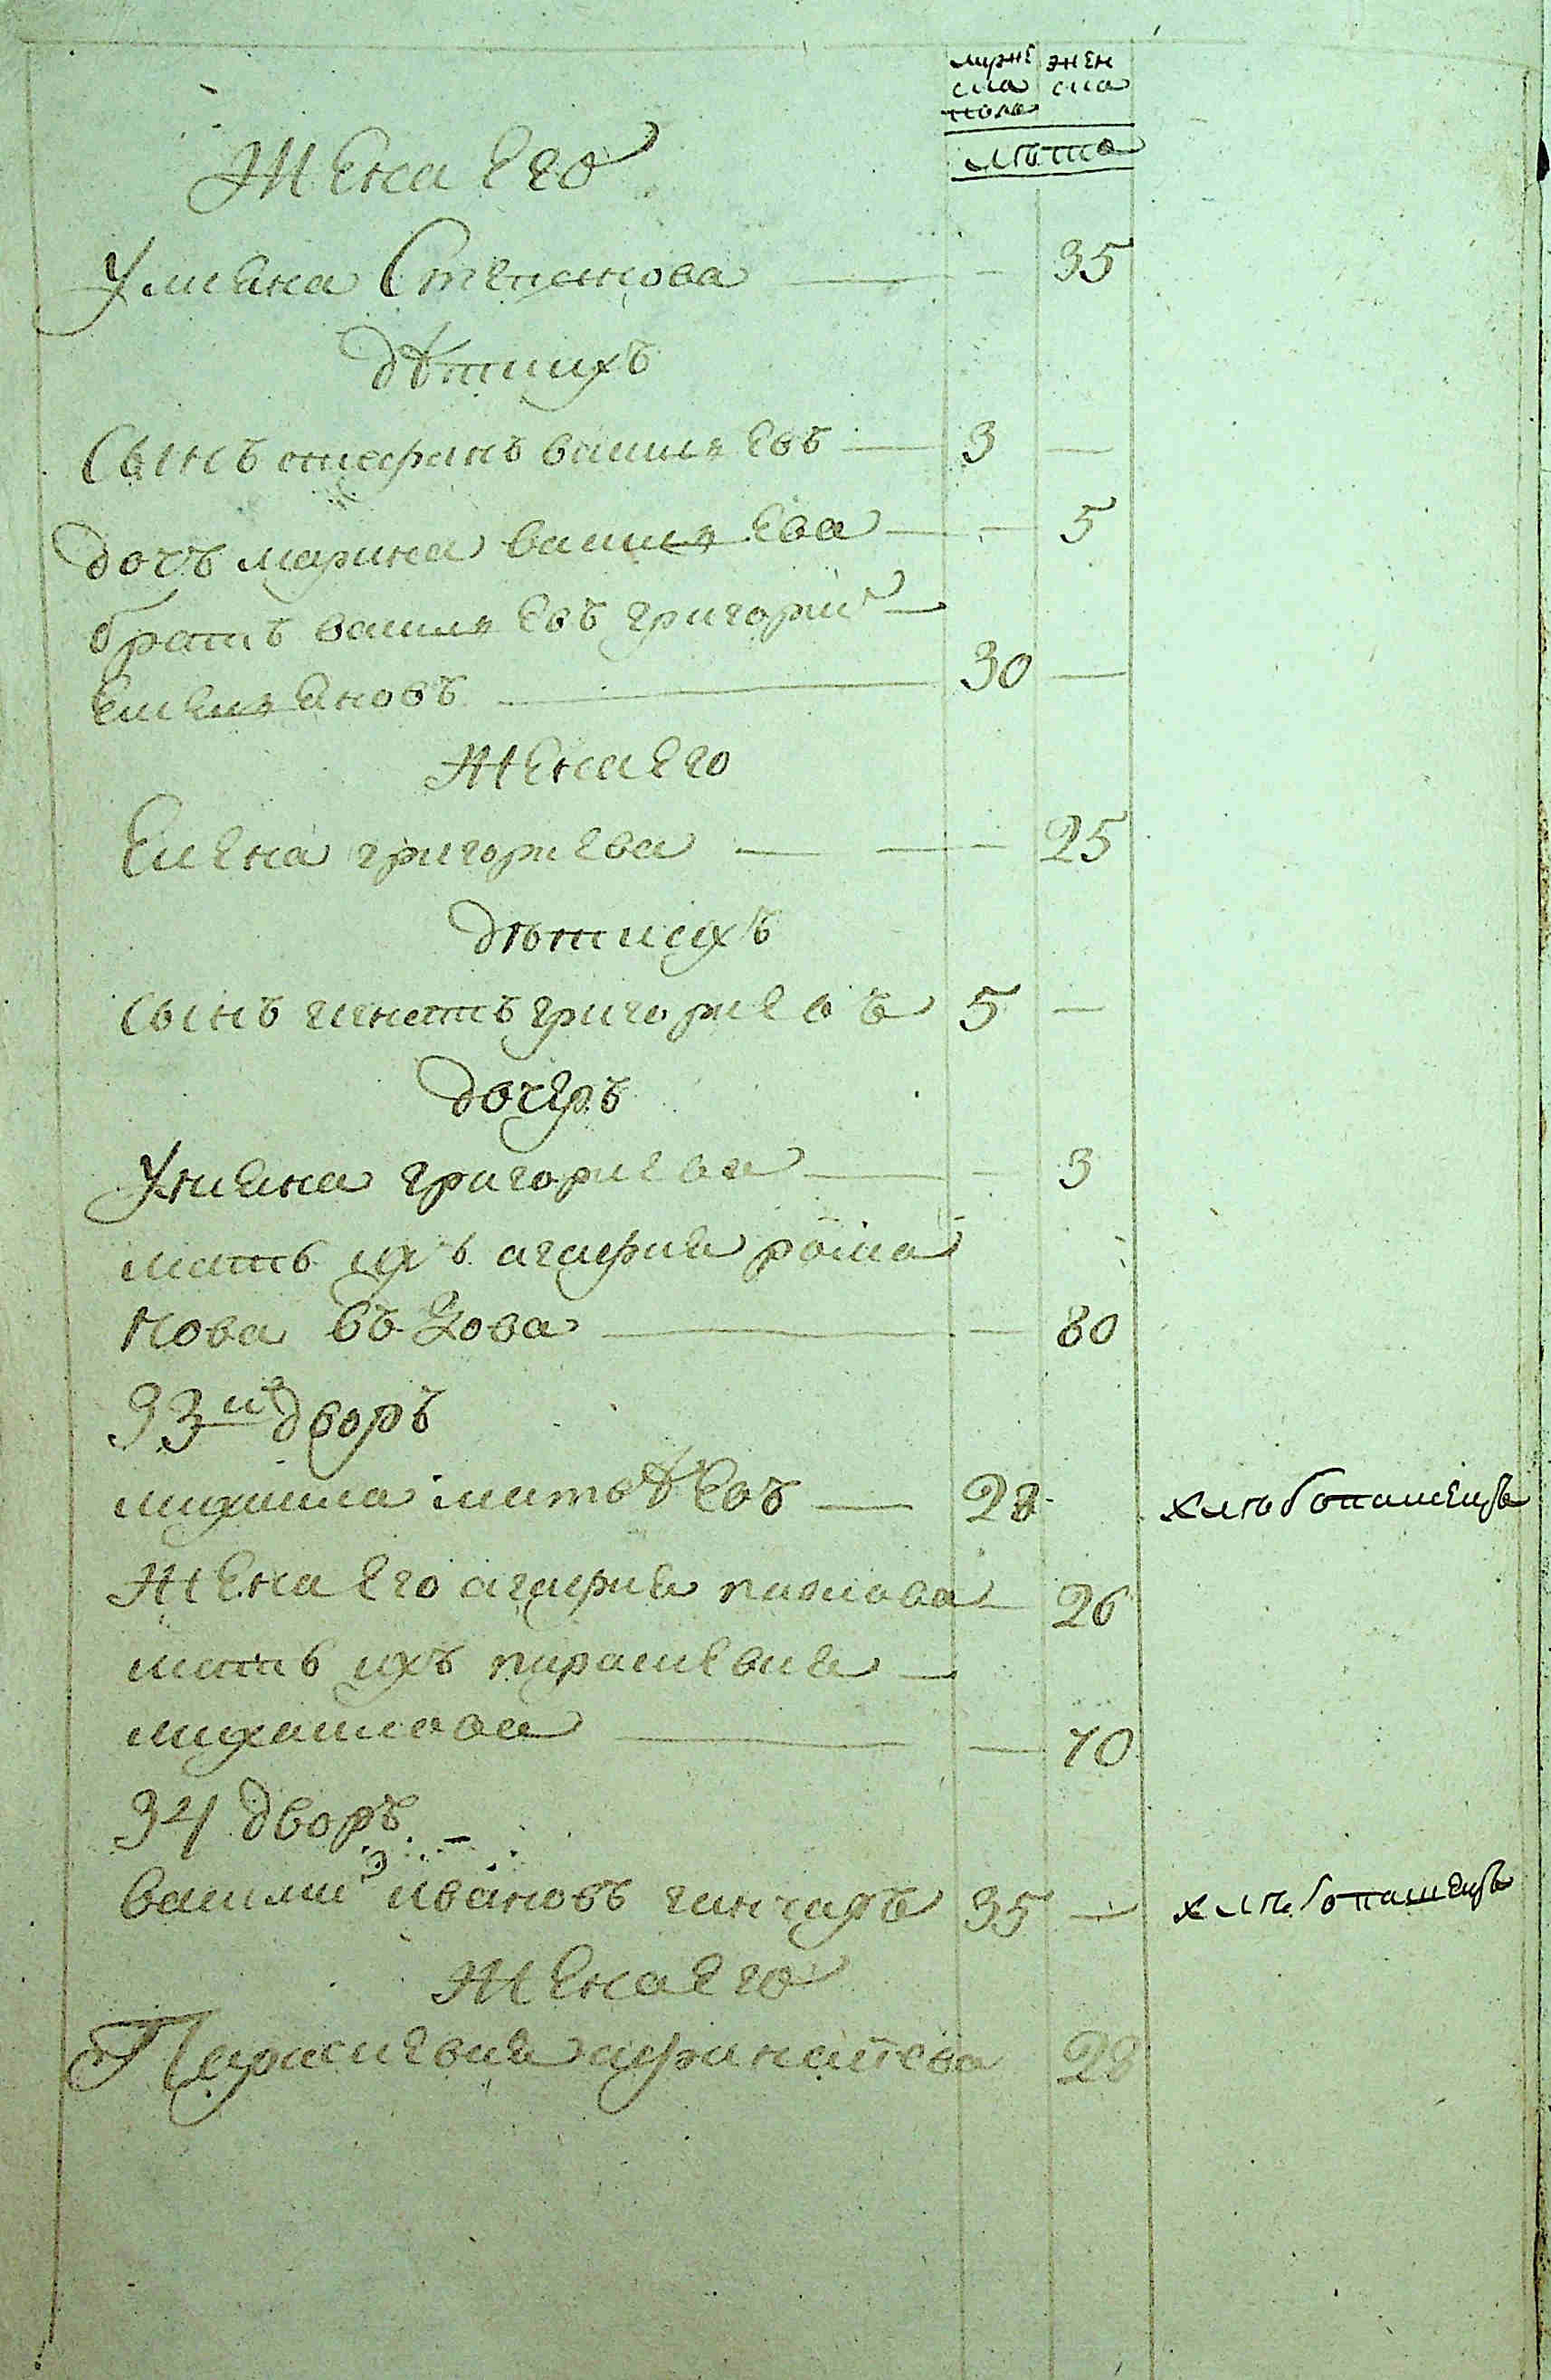 мужe жен
ска ска
пола
лѣта
Жена Его
Улиана Степанова — - 35
дѣти ихъ
Сынъ стефанъ василиевъ — 3 —
дочъ марина василиева — - 5
братъ василиевъ григорий —
емелиановъ — 30 —
Жена Его
Елена григориева — — 25
дѣти ихъ
сынъ игнатъ григориевъ 5 —
дочеръ
Улиана григориева — - 3
матъ ихъ агафиа рома
нова вдова — — 80
93й дворъ
михаила матѳѣевъ — 28 хлѣбопашецъ
Жена Его агафиа павлова — 26
матъ ихъ параскевиа —
михаилова — — 70
94 дворъ
василий ивановъ гинчаръ 35 — хлѣбопашецъ
Жена Его
Параскевиа афанасиева 28